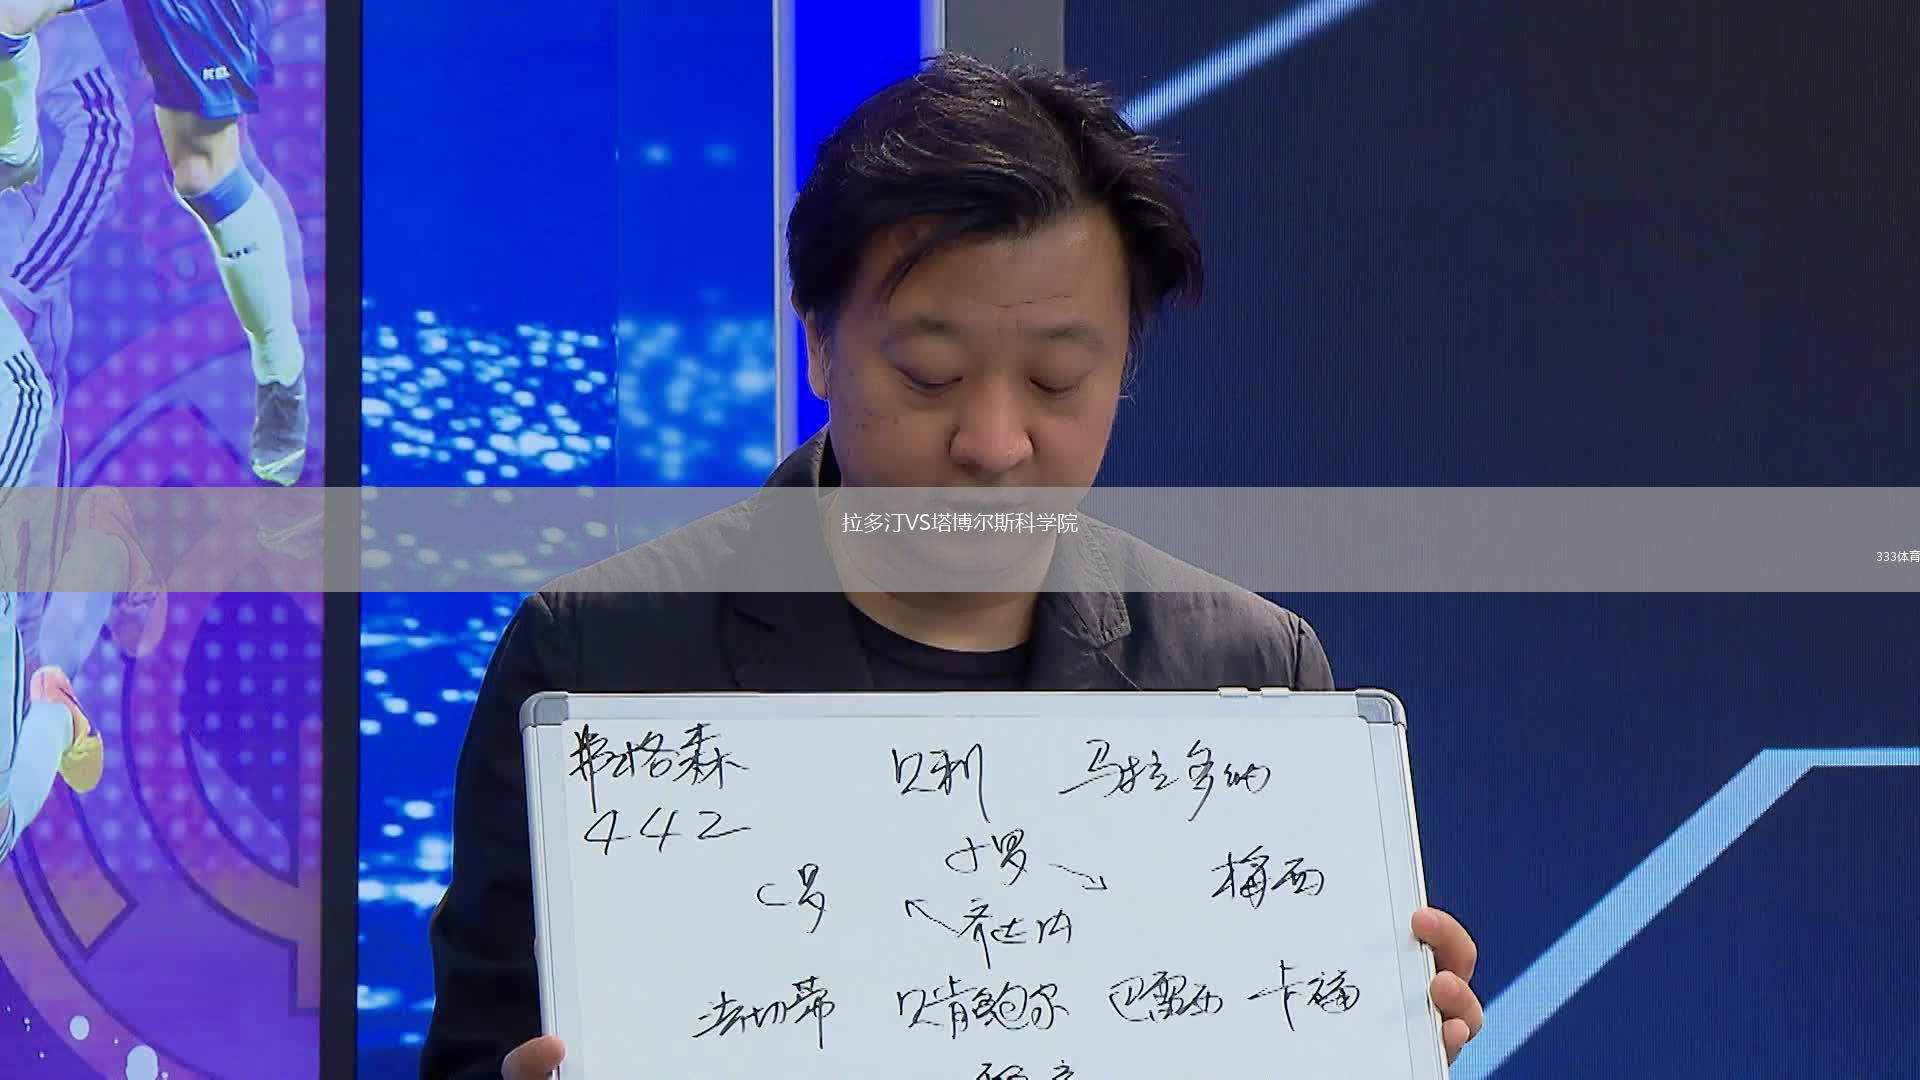 KELME
拉多汀VS塔博尔斯科学院
333体育
弗格森 贝利 马拉多纳
442
小罗
C罗 梅西
齐达内
法切蒂 贝肯鲍尔 巴雷西 卡福